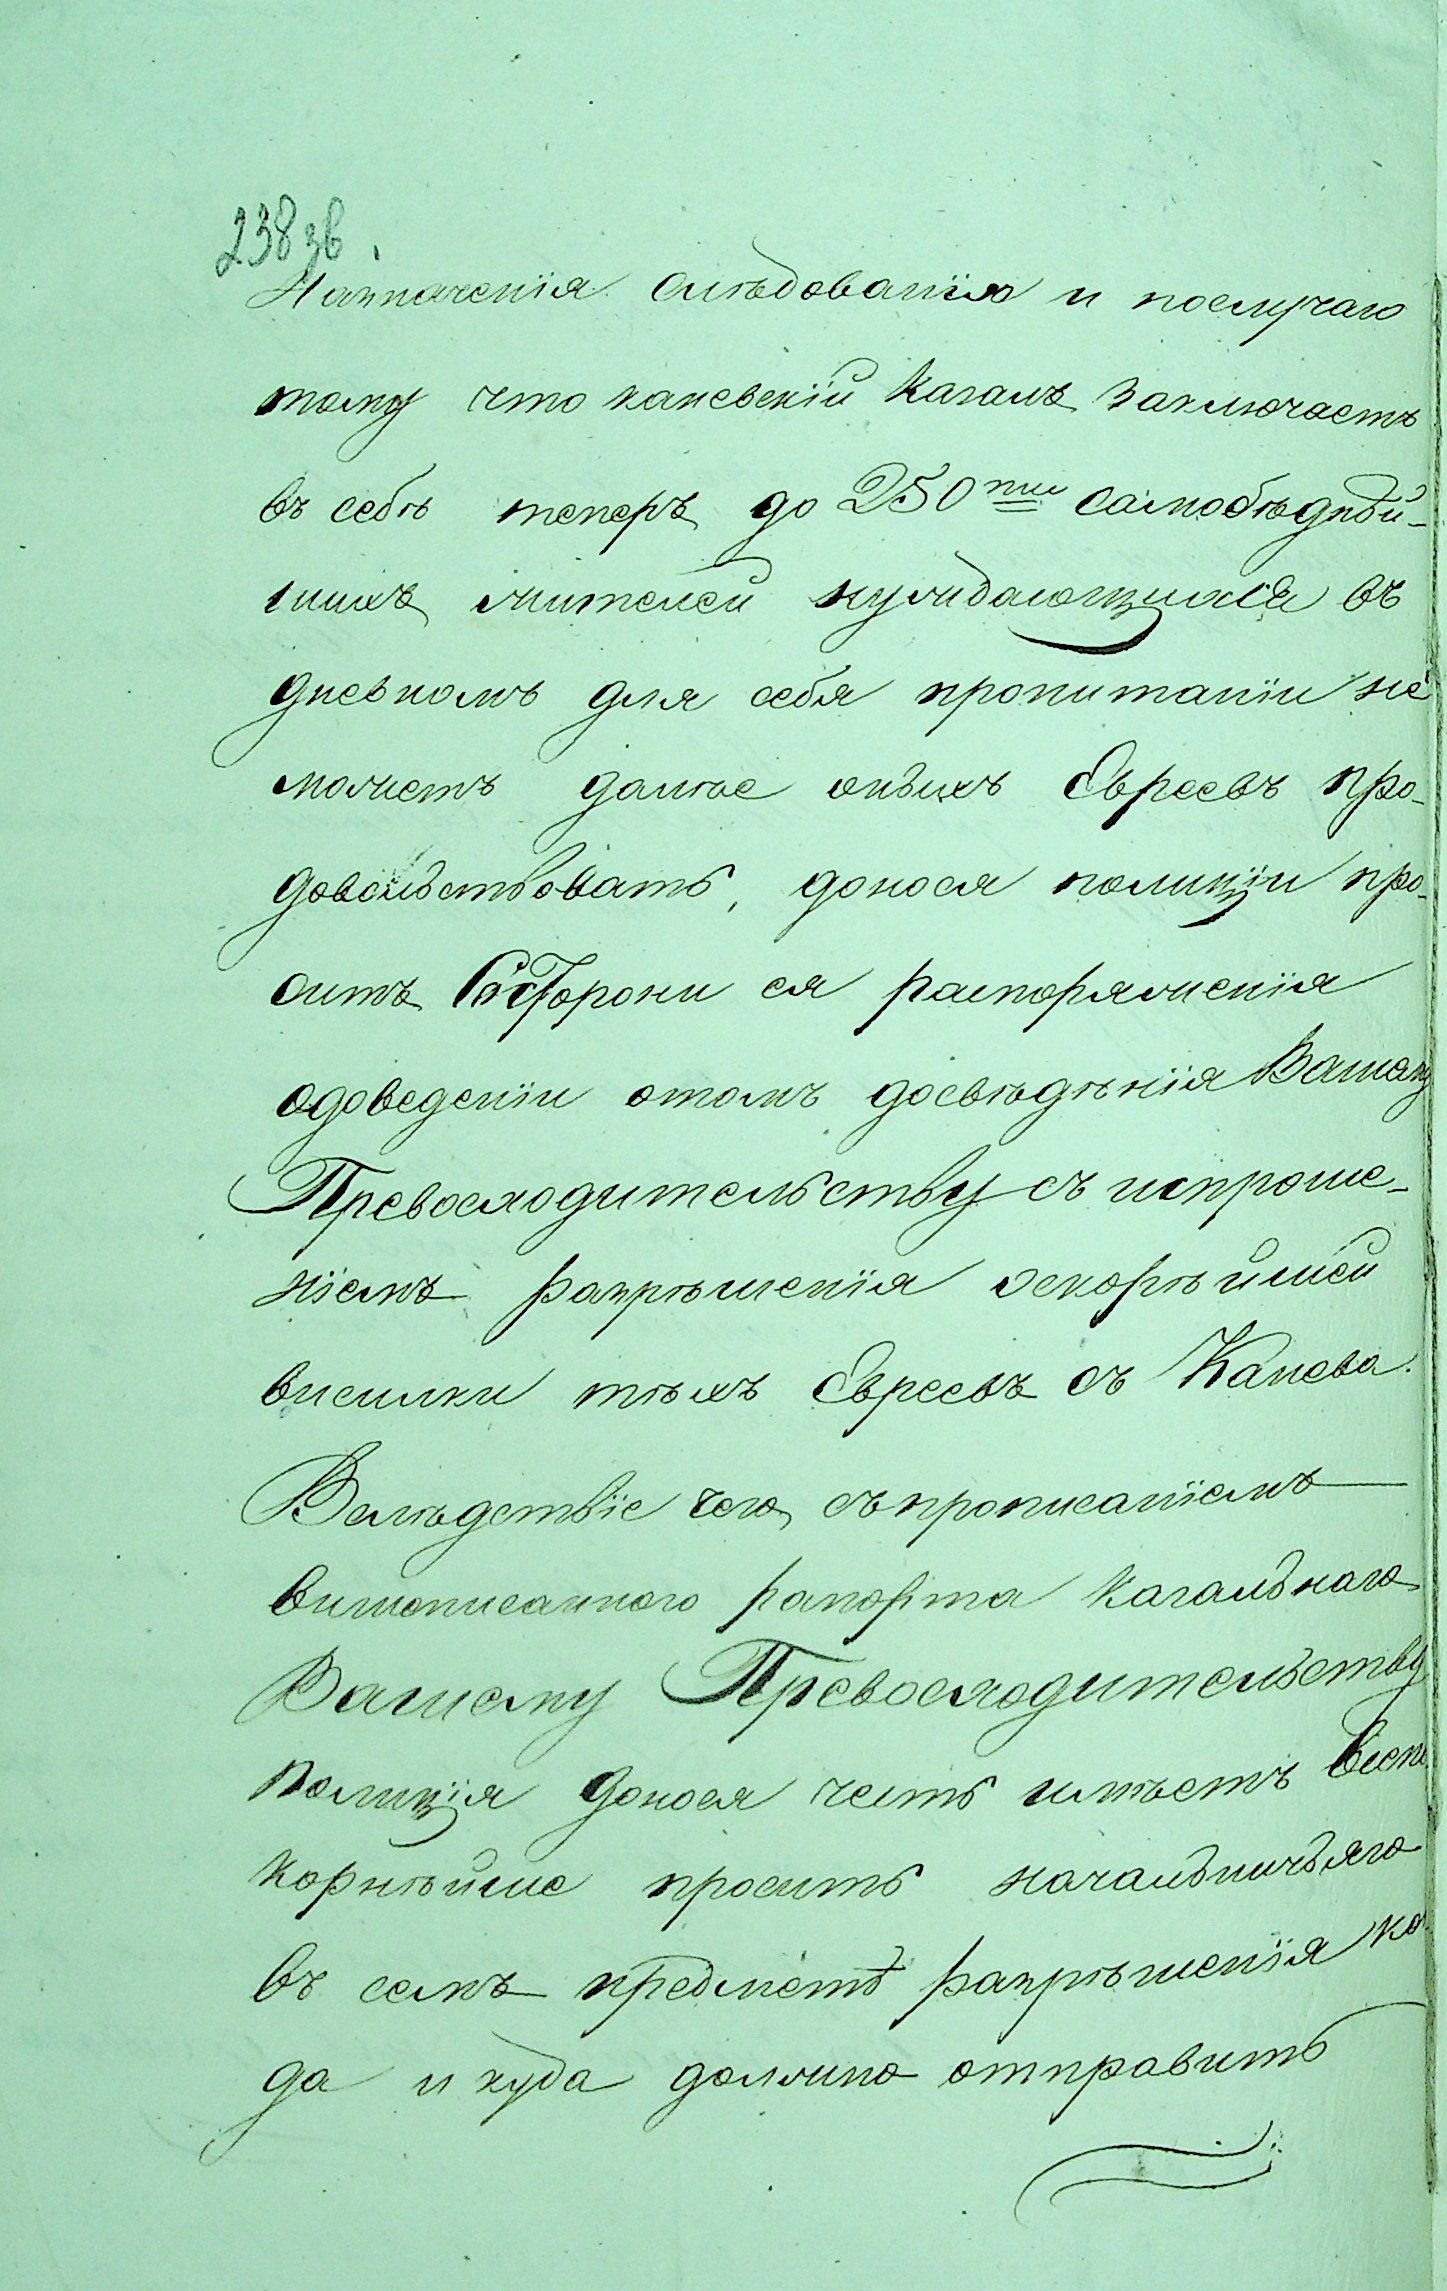 238 зв.
Назначенія слѣдованію и послучаю
тому что каневскій Кагалъ Заключаетъ
въ себѣ теперъ до 250ти самобѣднѣй-
шихъ жителей нуждающихся въ
дневномъ для себя пропитаніи не
можетъ далѣе онихъ Евреевъ про-
довольствовать, донося полиціи про-
ситъ Состороны ея распоряженія
одоведеніи отомъ досвѣдѣнія Вашему
Превосходительству съ испроше-
ніемъ разрѣшенія оскорѣйшей
висилки тѣхъ Евреевъ съ Канева.
Вслѣдствіе чего, съпрописаніемъ
вишеписанного рапорта Кагалънаго
Вашему Превосходительству
Полиція донося честь имѣетъ всепо
корнѣйше просить началъничъяго
въ семъ предметѣ разрѣшенія ко
да и куда должно отправить